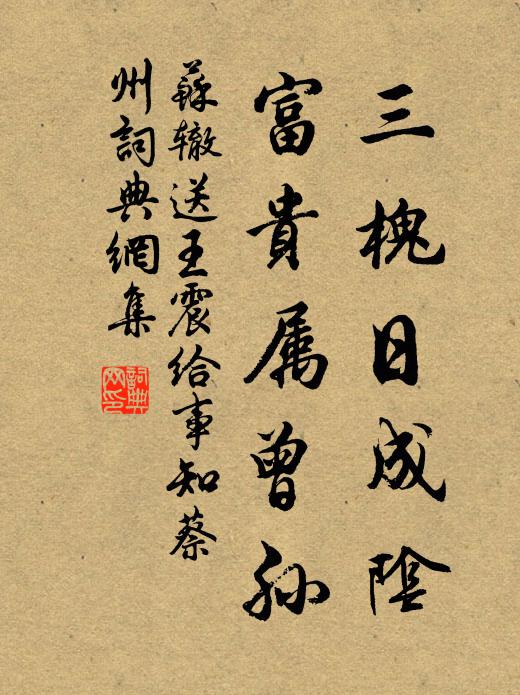 三槐日成陰
富貴属曾孫
蘇辙送王震给事知蔡
州詞典網集
詞典
网印